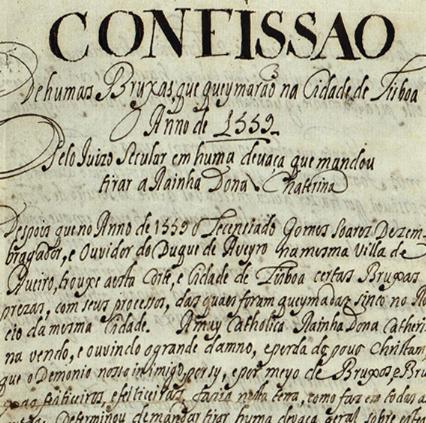 CONFISSAO
De humas Bruxas que queymarão na Cidade de Lisboa
Anno de 1559.
Pelo Juizo Secular em huma devaça que mandou
tirar a Rainha Dona Chaterina
Despois que no Anno de 1559 o Lecenciado Gomes Soares Dezem-
bragador, e Ouvidor do Duque de Aveyro na mesma Villa de
Aveiro, trouxe a esta Corte, e Cidade de Lisboa certas Bruxas
prezas, com seus proceços, das quais foram queymadas sinco no Ro-
cio da mesma Cidade. A muy Catholica Rainha Dona Catheri-
na vendo, e ouvindo o grande damno, e perda do povo Christam,
que o Demonio nosso inimigo, per sy, e por meyo de Bruxas, e Bru-
feiticeiros, e feiticeiras, fazia nesta terra, como faz em todas a
Determinou de mandar tirar huma devaça geral sobre este